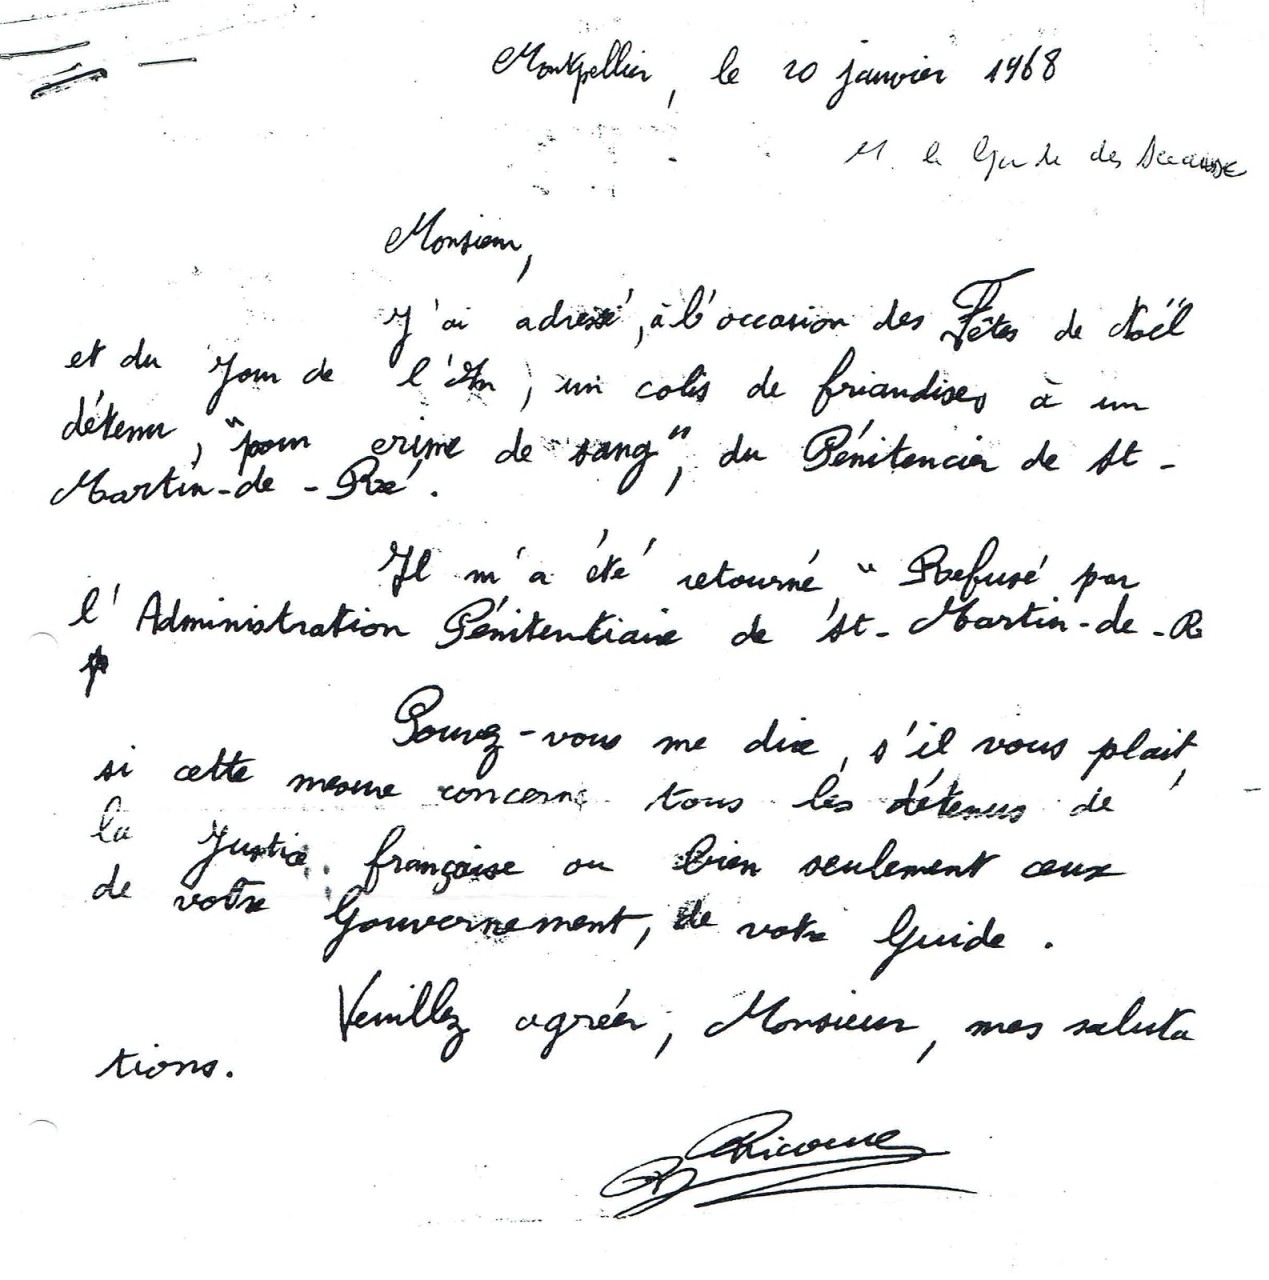 Montpellier, le 20 janvier 1968
M. le Garde des Sceaux
Monsieur,
J'ai adressé, à l'occasion des Fêtes de Noël
et du Jour de l'An, un colis de friandises à un
détenu, "pour crime de sang", du Pénitencier de St-
Martin-de-Ré.
Il m'a été retourné "Refusé par
l'Administration Pénitentiaire de St-Martin-de-R
Pouvez-vous me dire, s'il vous plait,
si cette mesure concerne tous les détenus de
la Justice française ou bien seulement ceux
de votre Gouvernement, de votre Guide.
Veuillez agréer, Monsieur, mes saluta
tions.
Ricome